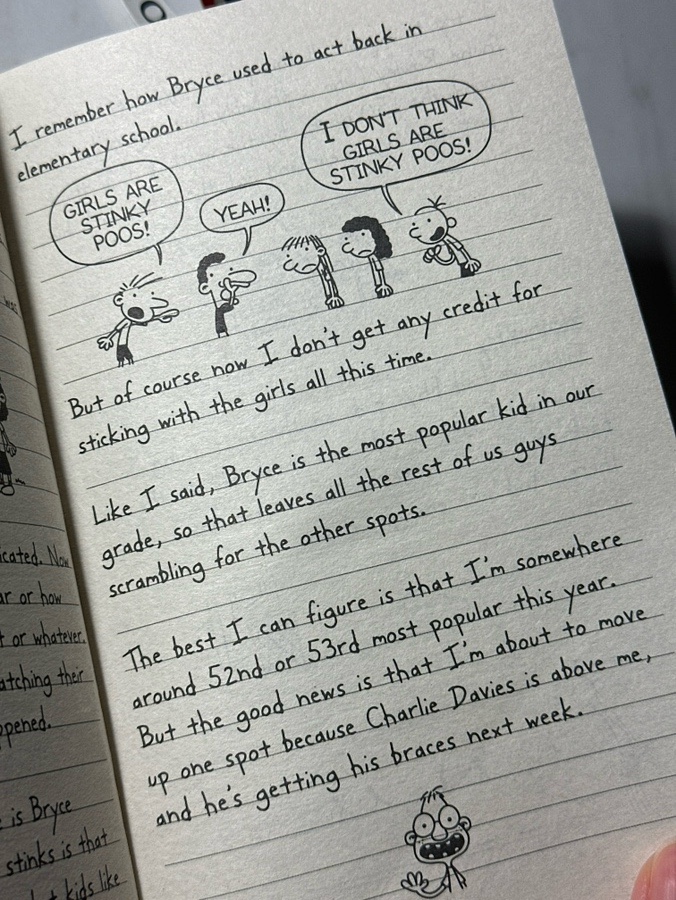 I remember how Bryce used to act back in
elementary school.
GIRLS ARE
STINKY
POOS!
YEAH!
I DON'T THINK
GIRLS ARE
STINKY POOS!
But of course now I don't get any credit for
sticking with the girls all this time.
Like I said, Bryce is the most popular kid in our
grade, so that leaves all the rest of us guys
scrambling for the other spots.
The best I can figure is that I'm somewhere
around 52nd or 53rd most popular this year.
But the good news is that I'm about to move
up one spot because Charlie Davies is above me,
and he's getting his braces next week.
Now
or how
or whatever.
their
is Bryce
stinks is that
kids like